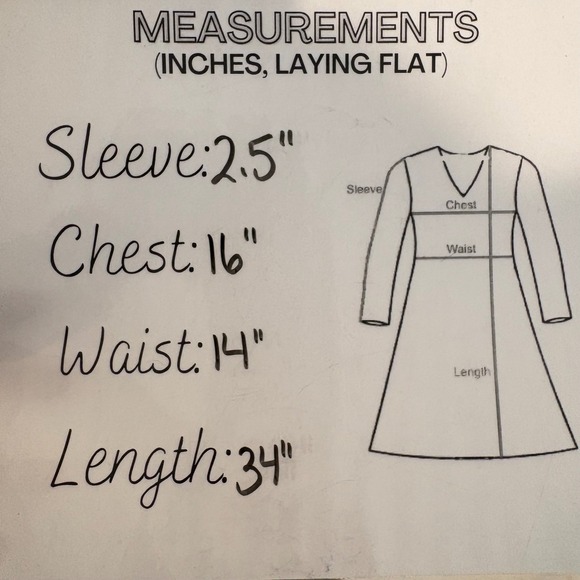 MEASUREMENTS
(INCHES, LAYING FLAT)
Sleeve: 2.5"
Chest: 16"
Waist: 14"
Length: 34"
Sleeve
Chest
Waist
Length